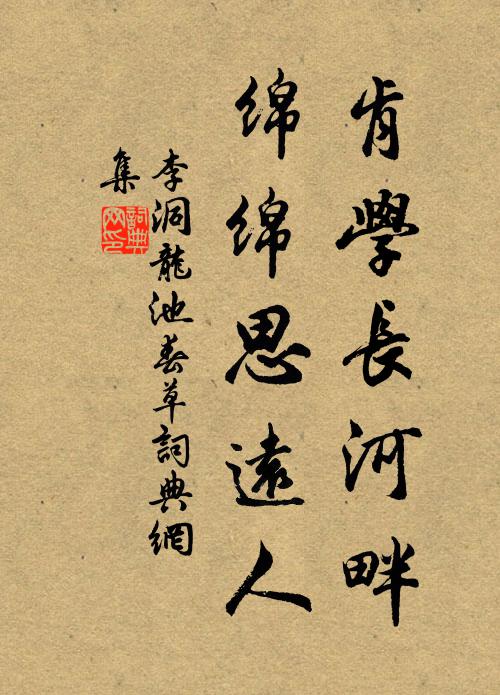 肯學長河畔
綿綿思遠人
李洞龍池春草詞典網
集
詞典网印